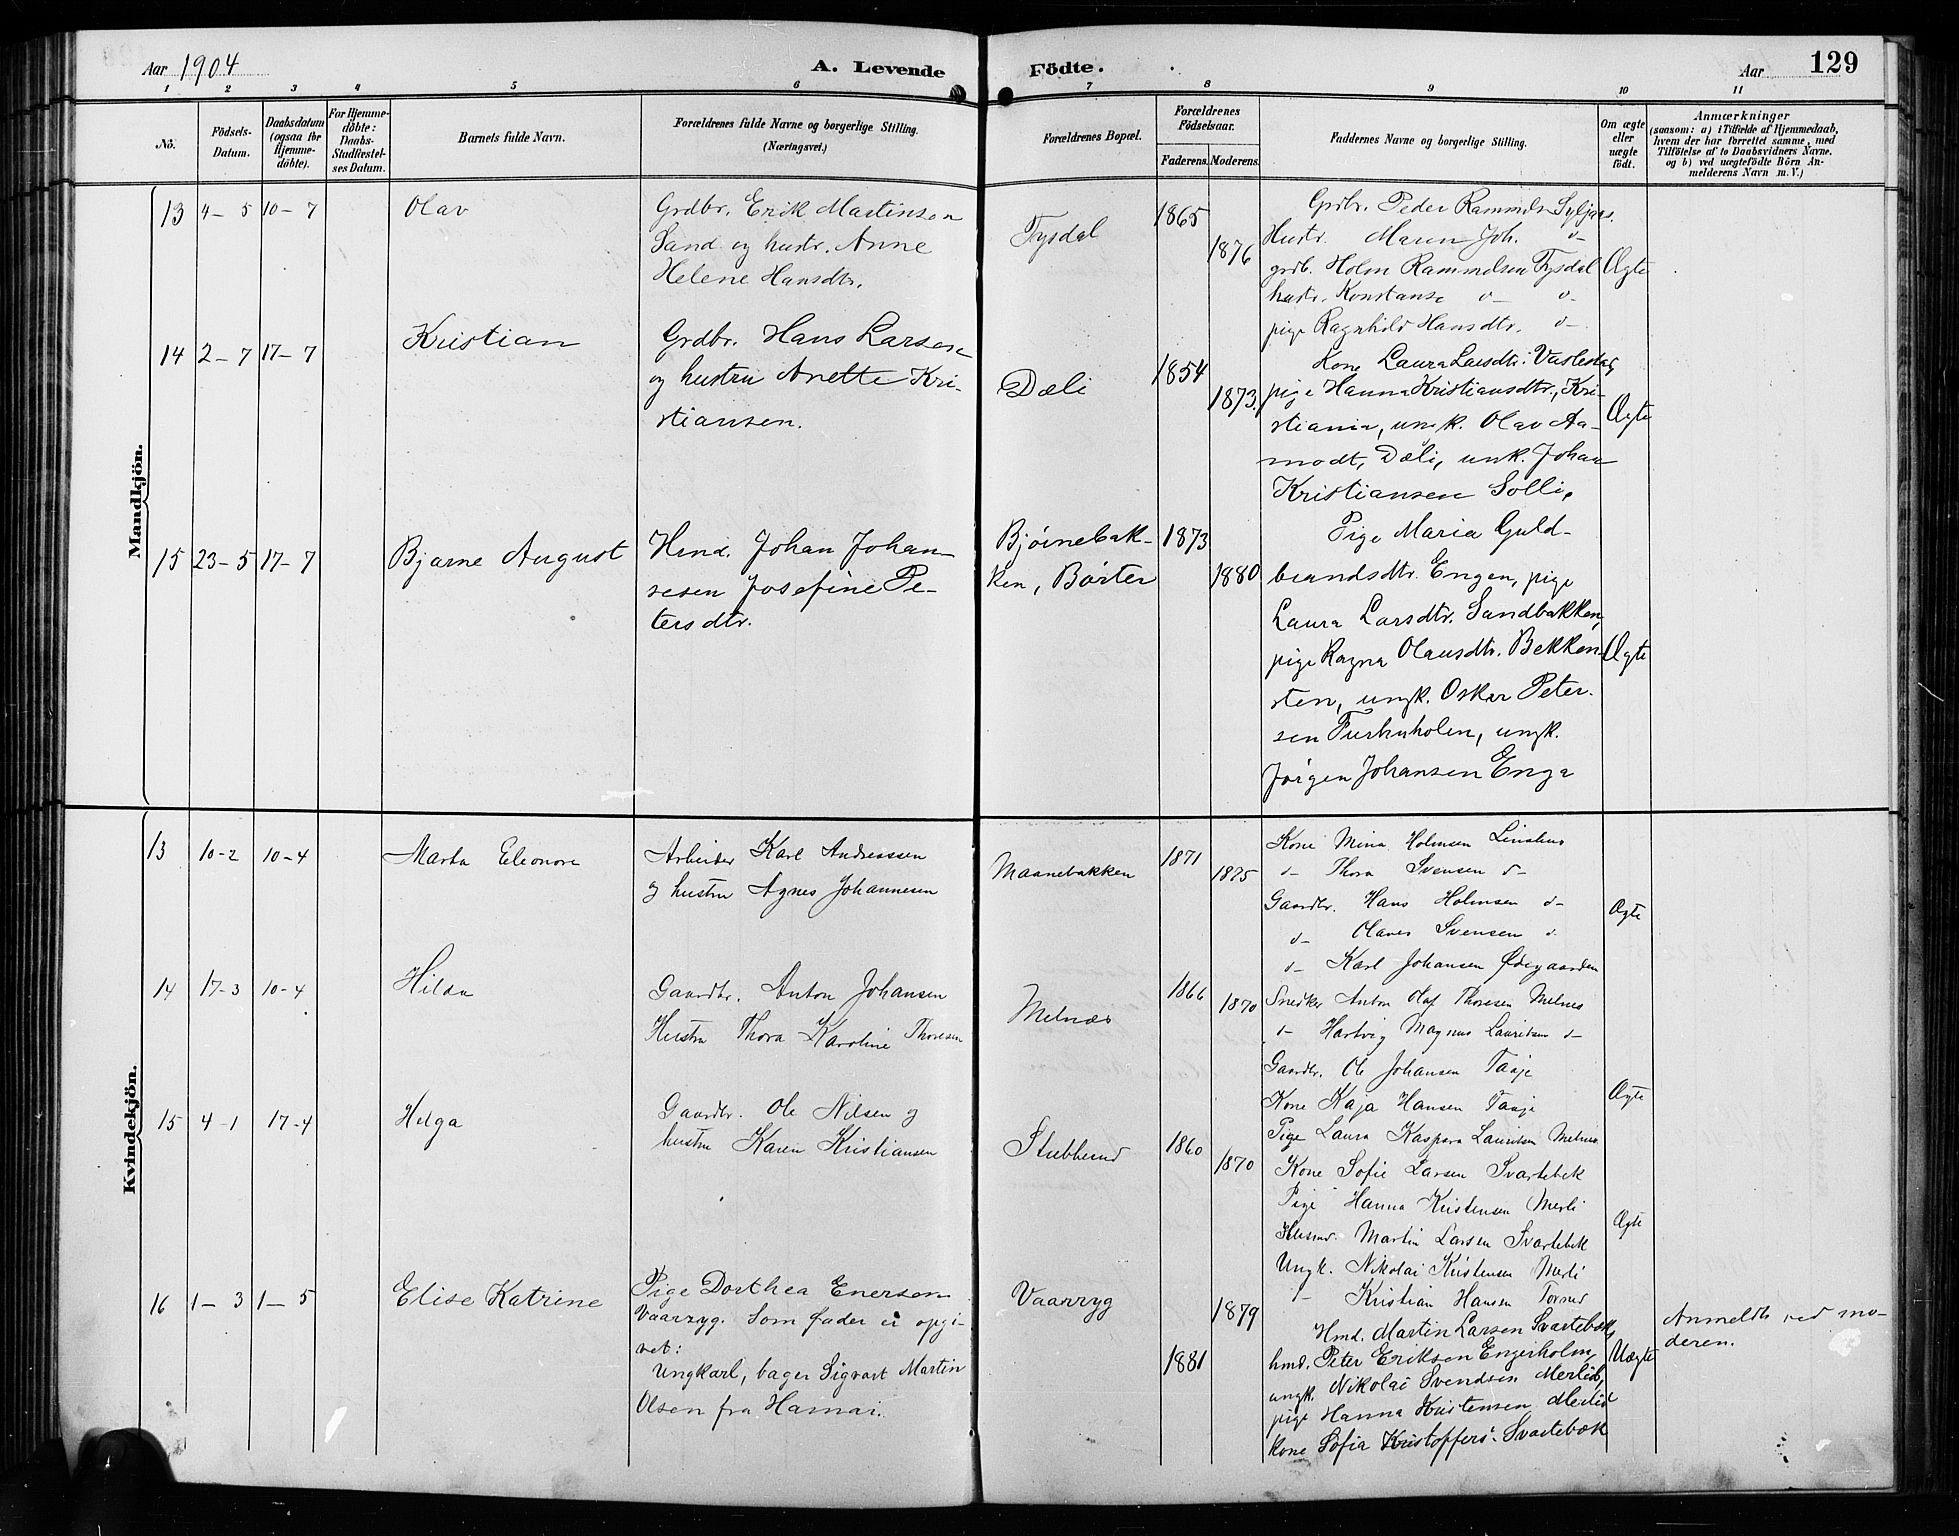 Aar 1904
A. Levende
Födte.
Aar
129
1 2 3 4 5 6 7 8 9 10 11
Nö.
Födsels-Datum.
Daabsdatum (ogsaa for Hjemme-döbte).
For Hjemme-döbte: Daabs-Stadfæstel-ses Datum.
Barnets fulde Navn.
Forældrenes fulde Navne og borgerlige Stilling. (Næringsvei.)
Forældrenes Bopæl.
Forældrenes Födselsaar.
Faderens. Moderens.
Faddernes Navne og borgerlige Stilling.
Om ægte eller uægte födt.
Anmærkninger
(saasom: a) i Tilfælde af Hjemmedaab, hvem der har forrettet samme, med Tilföielse af to Daabsvidners Navne, og b) ved uægtefödte Börn An-melderens Navn m. V.)
Mandkjön.
13 4-5 10-7 Olav
Grdbr. Erik Martinsen
Sand og hustr. Anne
Helene Hansdtr.
Tysdal
1865
1876
Grdbr. Peder Rammels.
Hustr. Maren Joh. d-
grdb. Holm Rammelsen Tysdal
hustr. Konstanse d- d-
pige Ragnhild Hansdtr. d-
Ægte
14 2-7 17-7 Kristian
Grdbr. Hans Larsen
og hustru Anette Kri-
stiansen.
Dæli
1854
1873.
Kone Laura Larsdtr.
pige Hanna Kristiansdtr., Kri-
stiania, unk. Olav Aa-
modt, Dæli, unk. Johan
Kristiansen Solli.
Ægte
15 23-5 17-7 Bjarne August
Hmd. Johan Johan-
sesen Josefine Pe-
tersdtr.
Bjørnebak-
ken, Børter
1873
1880
Pige Maria Guld-
brandsdtr. Engen, pige
Laura Larsdtr. Sandbakken,
pige Ragna Olausdtr. Bekken-
sten, ungk. Oskar Peter-
sen Furuholen, ungk.
Jørgen Johansen Enga
Ægte
Kvindekjön.
13 10-2 10-4 Marta Eleonore
Arbeider Karl Andreassen
og hustru Agnes Johannesen
Maanebakken
1871
1875
Kone Mina Holmsen
d- Thora Svensen d-
Gaardbr. Hans Holmsen d-
d- Svensen d.
d- Karl Johansen Ødegaarden
Ægte
14 17-3 10-4 Hilda
Gaardbr. Anton Johansen
Hustru Thora Karoline Thoresen
Melnæs
1866
1870
Snedker Anton Olaf Thoresen Melnes
d- Hartvig Magnus Lauritsen d-
Gaardbr. Ole Johansen Taaje
Kone Kaja Hansen Taaje
Pige Laura Kaspara Lauritsen Melnes
Ægte
15 4-1 17-4 Helga
Gaardbr. Ole Nilsen og
hustru Karen Kristiansen
Stubberud
1860
1870
Kone Sofie Larsen Svartebek
Pige Hanna Kristensen Merli
Husmd. Martin Larsen Svartebek
Ungk. Nikolai Kristensen Merli
d- Kristian Hansen
Ægte
16 1-3 1-5 Elise Katrine
Pige Dorthea Enersen
Vaarryg. Som fader er opgi-
vet:
Ungkarl, bager Sigvart Martin
Olsen fra Hamar.
Vaarryg
1879
1881
Hmd. Martin Larsen Svartebæk,
hmd. Peter Eriksen Engerholm,
ungk. Nikolai Svendsen Merlid,
pige Hanna Kristensen Merlid
kone Sofia Kristoffers. Svartebæk
Uægte
Anmeldt ved mo-
deren.